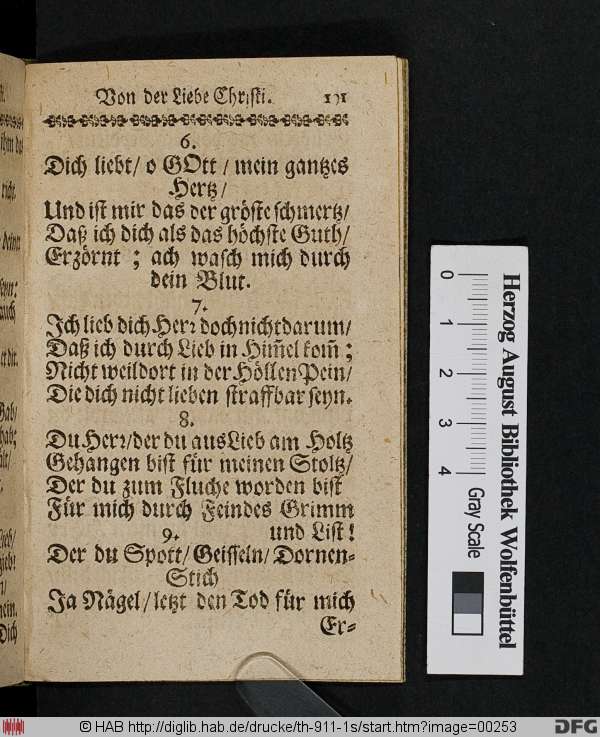 Von der Liebe Christi. 191
6.
Dich liebt/ o GOtt / mein gantzes
Hertz/
Und ist mir das der gröste schmertz/
Daß ich dich als das höchste Guth/
Erzörnt ; ach wasch mich durch
dein Blut.
7.
Ich lieb dich Herꝛ doch nicht darum/
Daß ich durch Lieb in Him̃el kom̃ ;
Nicht weil dort in der Höllen Pein/
Die dich nicht lieben straffbar seyn.
8.
Du Herꝛ/ der du aus Lieb am Holtz
Gehangen bist für meinen Stoltz/
Der du zum Fluche worden bist
Für mich durch Feindes Grimm
und List!
9.
Der du Spott/ Geisseln/ Dornen-
Stich
Ja Nägel/ letzt den Tod für mich
Er-
0 1 2 3 4
Herzog August Bibliothek Wolfenbüttel
Gray Scale
© HAB http://diglib.hab.de/drucke/th-911-1s/start.htm?image=00253
DFG